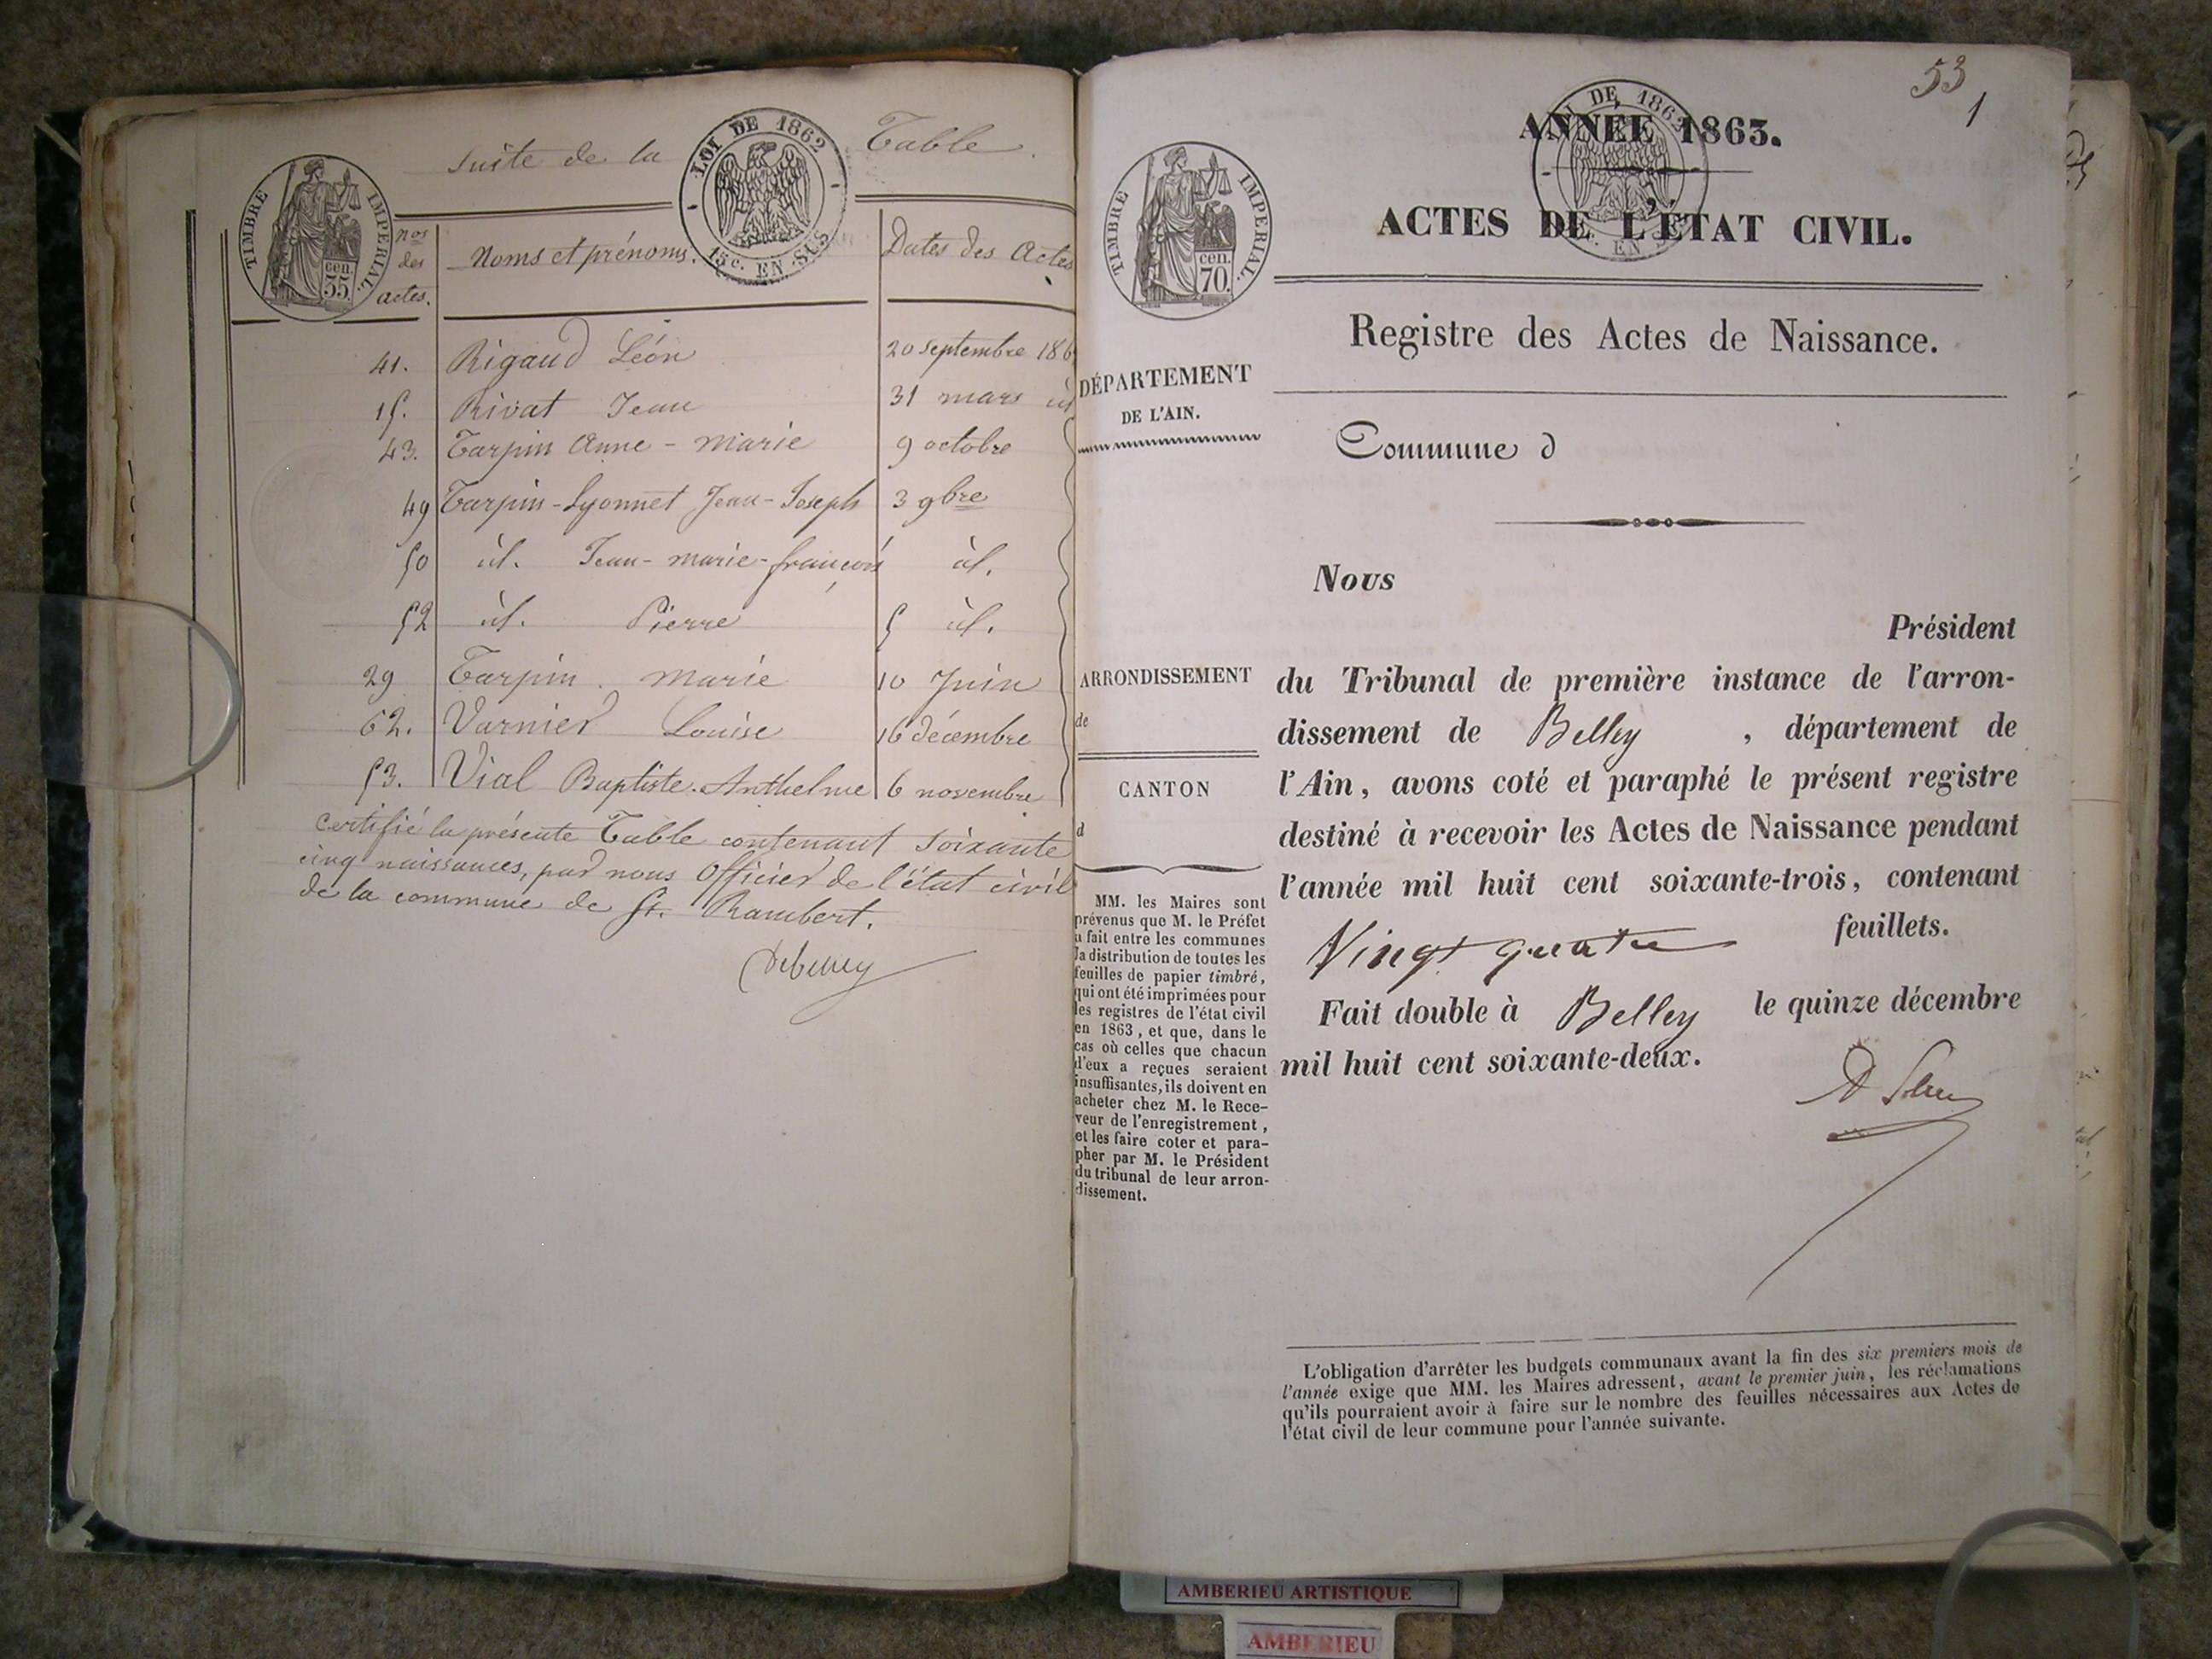 Suite de la Table.
LOI DE 1862
15c. EN SUS
TIMBRE IMPERIAL.
cen.
55.
nos
des
actes.
Noms et prénoms.
Dates des Actes
41. Rigaud Léon 20 septembre 186
15. Rivat Jean 31 mars id
43. Tarpin Anne-Marie 9 octobre
49 Tarpin-Lyonnet Jean-Joseph 3 9bre
50 id. Jean-marie-françois id.
52 id. Pierre 5 id.
29 Tarpin Marie 10 Juin
62. Varnier Louise 16 décembre
53. Vial Baptiste-Anthelme 6 novembre
Certifié la présente Table contenant soixante
cinq naissances, par nous Officier de l'état civil
de la commune de St. Rambert.
53
1
LOI DE 1862
EN
ANNÉE 1863.
TIMBRE IMPERIAL.
cen.
70.
ACTES DE L'ÉTAT CIVIL.
Registre des Actes de Naissance.
DÉPARTEMENT
DE L'AIN.
Commune d
ARRONDISSEMENT
de
CANTON
d
MM. les Maires sont
prévenus que M. le Préfet
a fait entre les communes
la distribution de toutes les
feuilles de papier timbré,
qui ont été imprimées pour
les registres de l'état civil
en 1863, et que, dans le
cas où celles que chacun
d'eux a reçues seraient
insuffisantes, ils doivent en
acheter chez M. le Rece-
veur de l'enregistrement,
et les faire coter et para-
pher par M. le Président
du tribunal de leur arron-
dissement.
Nous
Président
du Tribunal de première instance de l'arron-
dissement de Belley , département de
l'Ain, avons coté et paraphé le présent registre
destiné à recevoir les Actes de Naissance pendant
l'année mil huit cent soixante-trois, contenant
Vingt quatre feuillets.
Fait double à Belley le quinze décembre
mil huit cent soixante-deux.
L'obligation d'arrêter les budgets communaux avant la fin des six premiers mois de
l'année exige que MM. les Maires adressent, avant le premier juin, les réclamations
qu'ils pourraient avoir à faire sur le nombre des feuilles nécessaires aux Actes de
l'état civil de leur commune pour l'année suivante.
AMBERIEU ARTISTIQUE
AMBERIEU